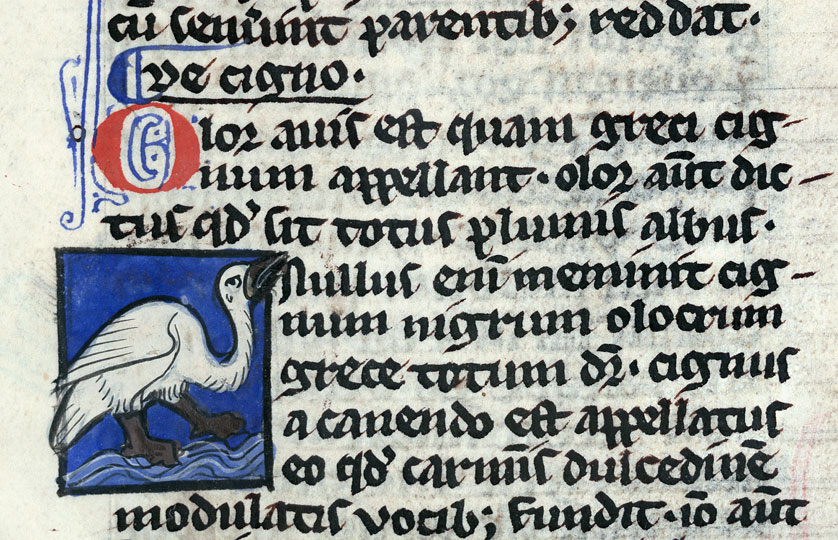 cū seruiunt parentib; reddat.
De cigno.
Olor auis est quam greci cig-
num appellant. olor aūt dic-
tus qd' sit totus plumis albus.
Nullus enī meminit cig-
num nigrum olocrum
grece totum dr̄. cignus
a canendo est appellatus
eo qd' carminis dulcedinē
modulatis vocib; fundit. iō aūt